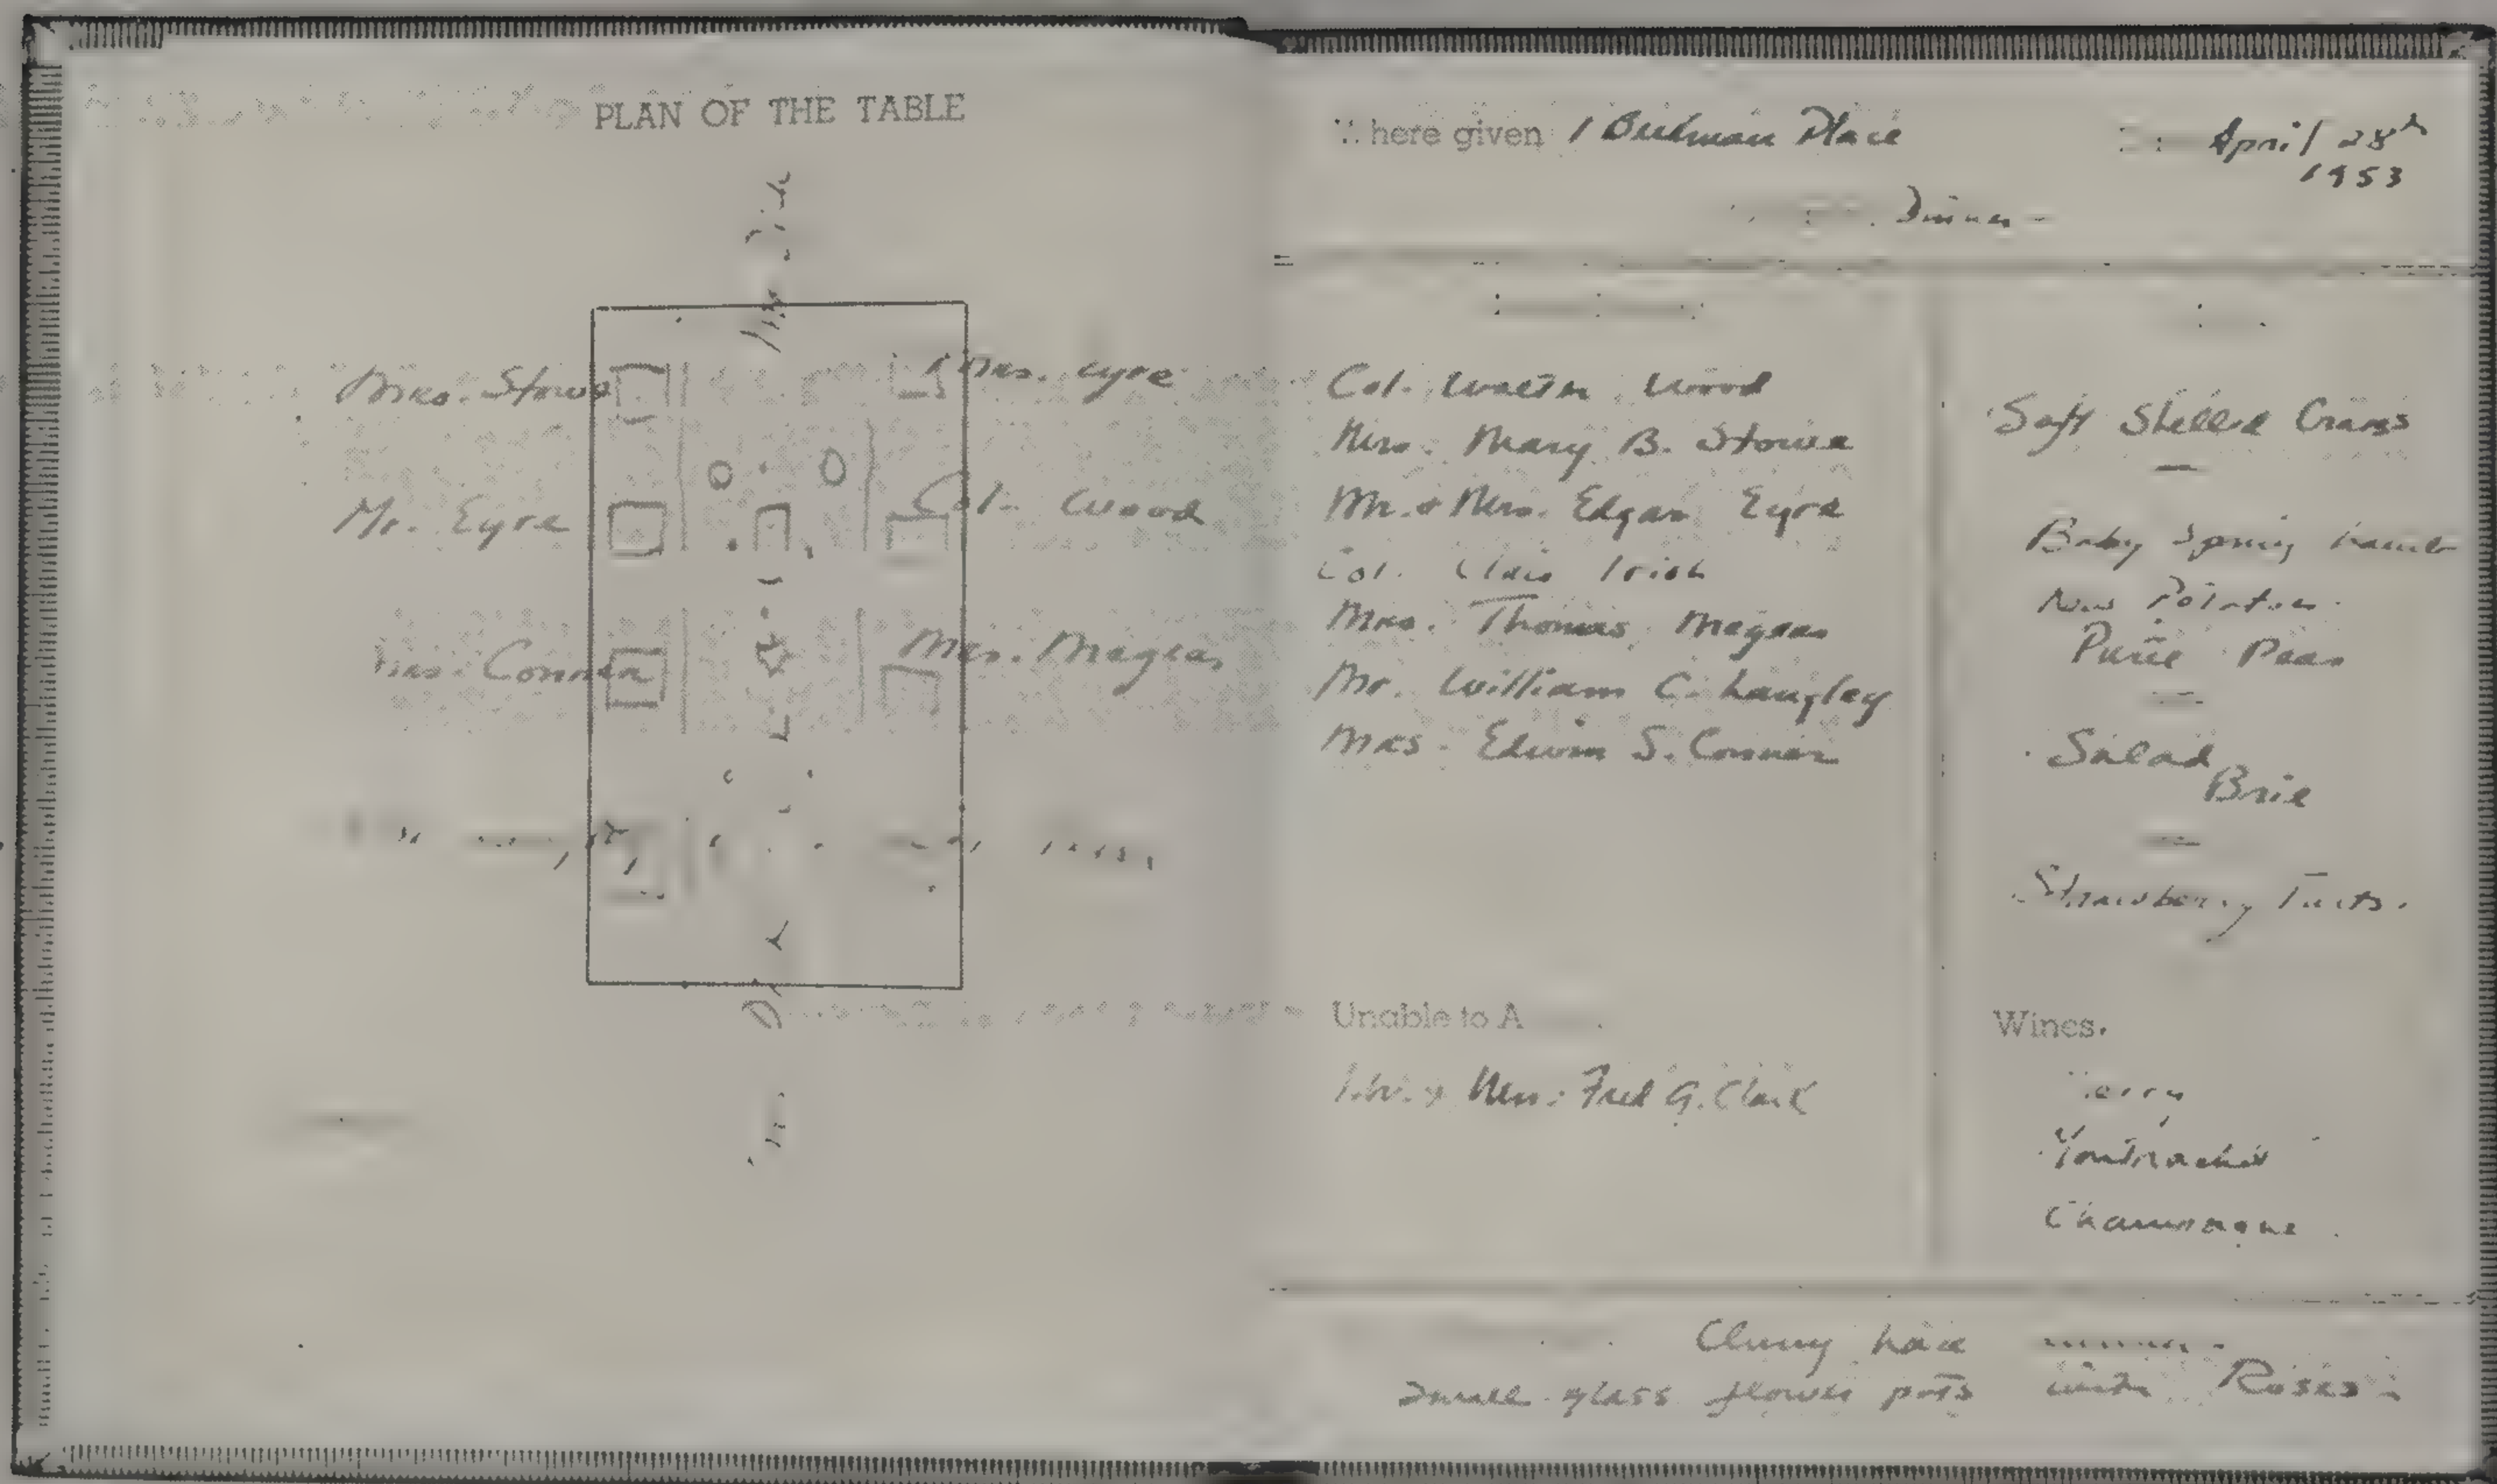 PLAN OF THE TABLE
Mrs. Stowe
Mrs. Eyre
Mr. Eyre
Col. Wood
Mrs. Connor
Mrs. Magear
here given 1 Beekman Place
April 28th
1953
Dinner
Col. Walter Wood
Mrs. Mary B. Stowe
Mr. & Mrs. Edgar Eyre
Col. Clair Irish
Mrs. Thomas Magear
Mr. William C. Langley
Mrs. Edwin S. Connor
Unable to A
Mr. & Mrs. Fred G. Clark
Soft Shelled Crabs
Baby Spring Lamb
New Potatoes
Purée Peas
Salad
Brie
Strawberry Tarts.
Wines.
Montrachet
Champagne
Cluny Lace
Small glass flower pots with Roses